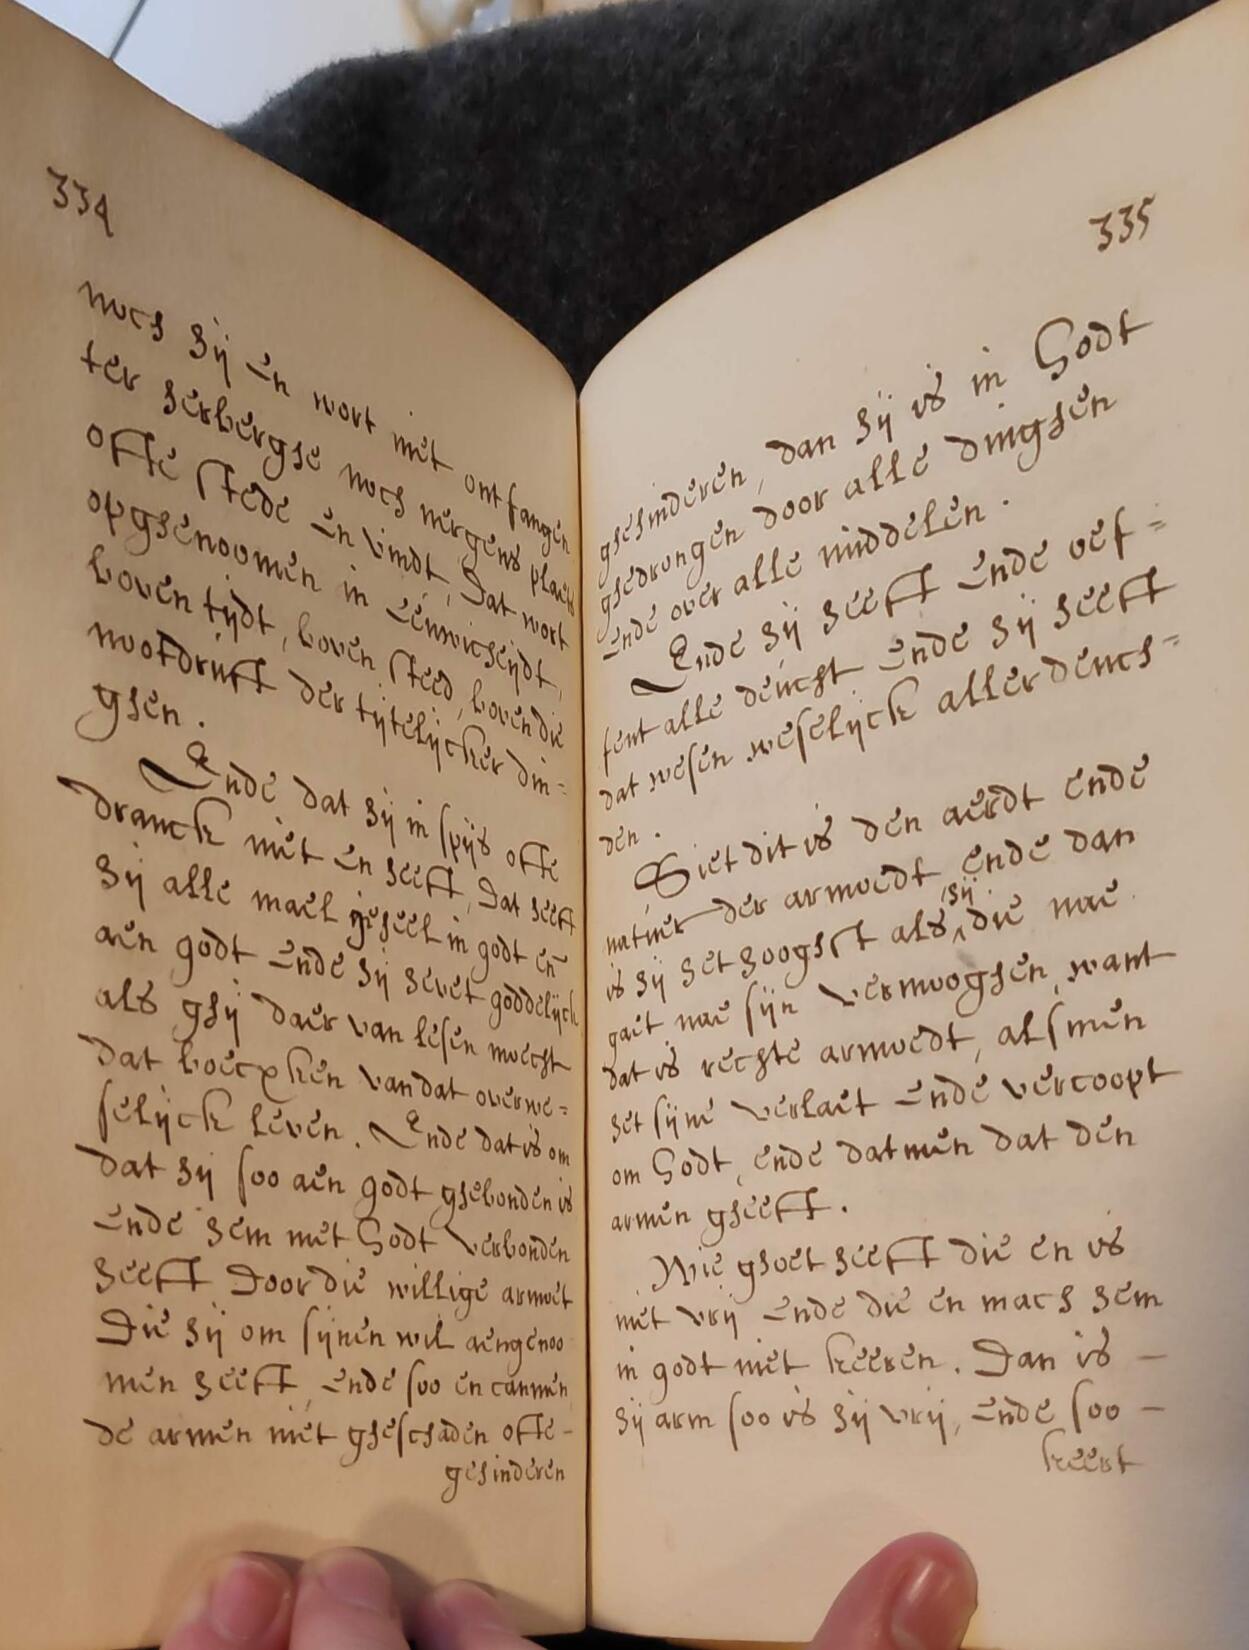 334
noch hij en wort niet ontfangen
ter herberghe noch nergens plaets
ofte stede en vindt, Dat wort
opghenoomen in eenvicheijdt,
boven tijdt, boven steed, boven die
nootdruft der tijtelijcker din=
ghen.
Ende dat hij in spijs ofte
dranck niet en heeft, Dat heeft
hij alle mael geheel in godt en̄
aen godt ende hij levet goddelijck
als ghij daer van lesen moecht
dat boecxken van dat overwe=
selijck leven. Ende dat is om
dat hij soo aen godt ghebonden is
ende hem met Godt verbonden
heeft Door die willige armoet
Die hij om sijnen wil aengenoo
men heeft, ende soo en canmen
de armen niet gheschaden ofte-
gehinderen
335
ghehinderen, dan hij is in Godt
ghedrongen door alle dinghen
ende over alle middelen.
Ende hij heeft ende oef=
fent alle deucht ende hij heeft
dat wesen weselijck aller deuch=
den.
Siet dit is den aerdt ende
natuer der armoedt ende dan
is hij het hooghst als hij die nae
gaet nae sijn vermooghen, want
dat is rechte armoedt, als men
het sijne verlaet ende vercoopt
om Godt, ende datmen dat den
armen gheeft.
Wie ghoet heeft die en is
niet vrij ende die en mach hem
in godt niet keeren. Dan is -
hij arm soo is hij vrij, ende soo -
keert